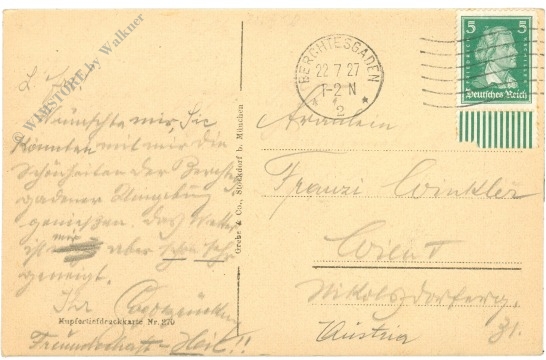 © WHISTORE by Walkner
Wünschte mir, Sie
könnten mit mir die
Schönheiten der Berchtes
gadener Umgebung
genießen. Das Wetter
ist mir aber schon sehr
geneigt.
Ihr
Freundschaft-Heil!!
Kupfertiefdruckkarte Nr. 270
Grebe & Co., Stöckdorf b. München
BERCHTESGADEN
22.7.27
1-2 N
* 2 *
5 5
Deutsches Reich
Fräulein
Franzi Winkler
Wien V
Nikolsdorferg.
31.
Austria